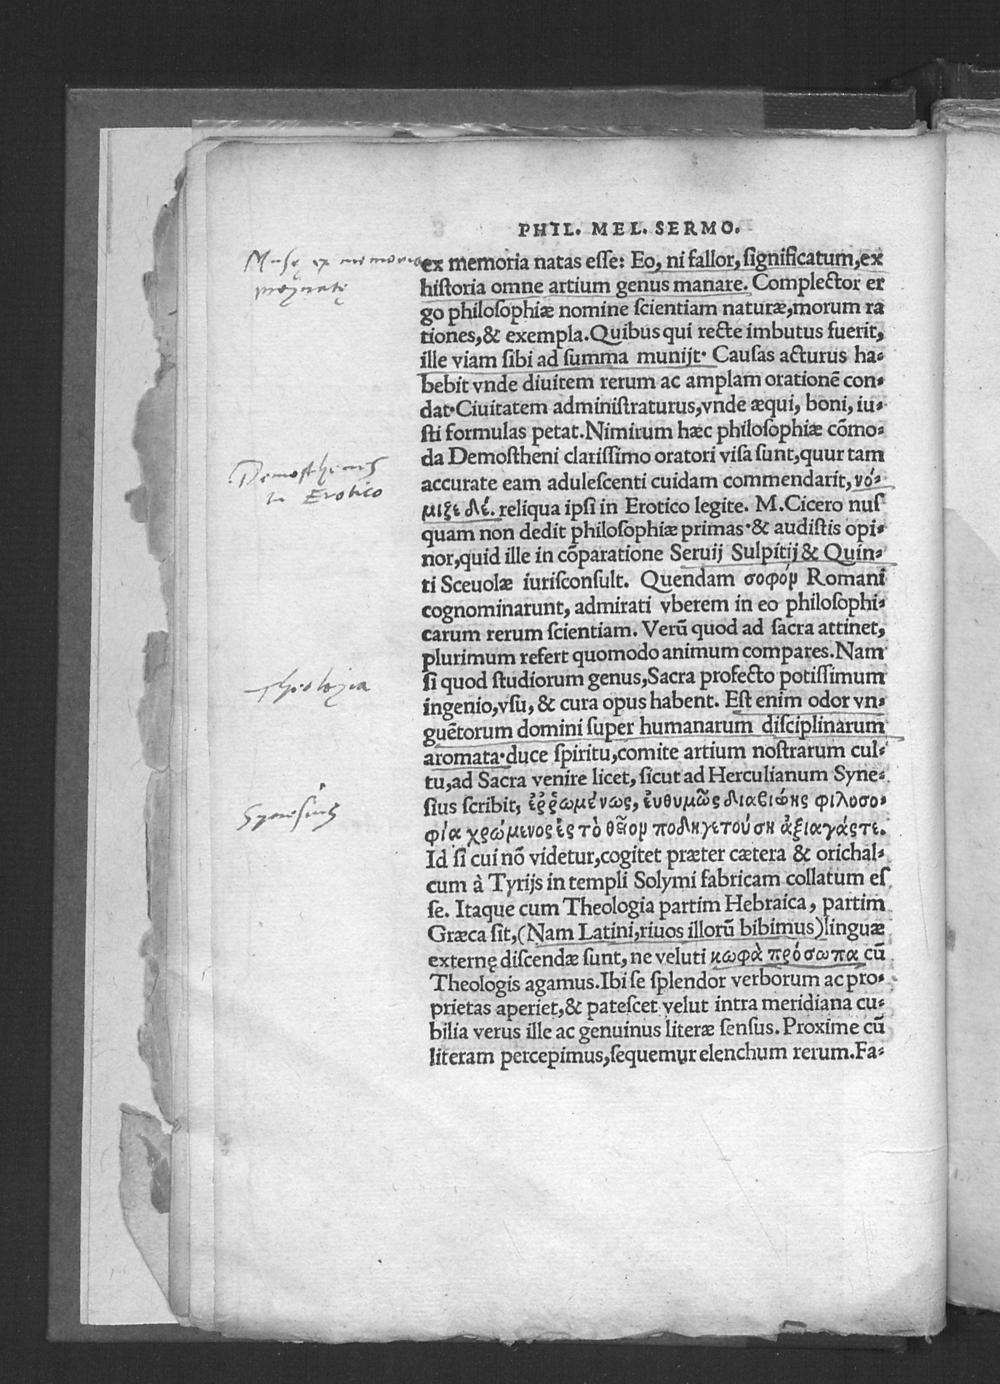 PHIL. MEL. SERMO.
Musę ex memoria
ex memoria natas esse: Eo, ni fallor, significatum, ex
historia omne artium genus manare. Complector er
go philosophiæ nomine scientiam naturæ, morum ra
tiones, & exempla. Quibus qui recte imbutus fuerit,
ille viam sibi ad summa munijt· Causas acturus ha⸗
bebit vnde diuitem rerum ac amplam orationē con⸗
dat· Ciuitatem administraturus, vnde æqui, boni, iu⸗
sti formulas petat. Nimirum hæc philosophiæ cōmo⸗
Demosthenis
in Erotico
da Demostheni clarissimo oratori visa sunt, quur tam
accurate eam adulescenti cuidam commendarit, νό⸗
μιζε δέ. reliqua ipsi in Erotico legite. M. Cicero nus
quam non dedit philosophiæ primas· & audistis opi⸗
nor, quid ille in cōparatione Seruij Sulpitij & Quin⸗
ti Sceuolæ iurisconsult. Quendam σοφόν Romani
cognominarunt, admirati vberem in eo philosophi⸗
carum rerum scientiam. Verū quod ad sacra attinet,
plurimum refert quomodo animum compares. Nam
Theologia
si quod studiorum genus, Sacra profecto potissimum
ingenio, vsu, & cura opus habent. Est enim odor vn⸗
guētorum domini super humanarum disciplinarum
aromata· duce spiritu, comite artium nostrarum cul⸗
tu, ad Sacra venire licet, sicut ad Herculianum Syne⸗
Synesius
sius scribit, ἐῤῥωμένως, ἐυθυμῶς διαβιώης φιλοσο⸗
φία χρώμενος ἐς τὸ θεῖον ποδηγετούση ἀξιαγάστε.
Id si cui nō videtur, cogitet præter cætera & orichal⸗
cum à Tyrijs in templi Solymi fabricam collatum es
se. Itaque cum Theologia partim Hebraica, partim
Græca sit, (Nam Latini, riuos illorū bibimus) linguæ
externę discendæ sunt, ne veluti κωφὰ πρόσωπα cū
Theologis agamus. Ibi se splendor verborum ac pro⸗
prietas aperiet, & patescet velut intra meridiana cu⸗
bilia verus ille ac genuinus literæ sensus. Proxime cū
literam percepimus, sequemur elenchum rerum. Fa⸗